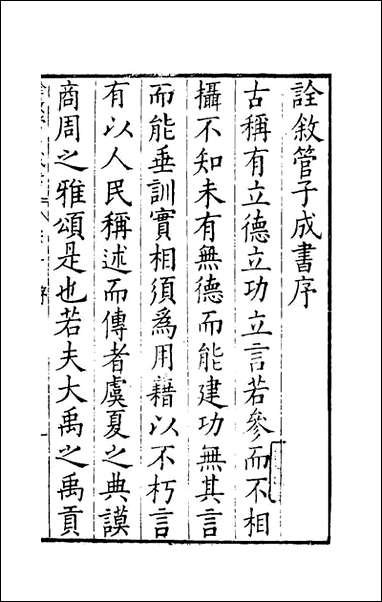 詮敘管子成書序
古稱有立德立功立言若參而不相
攝不知未有無德而能建功無其言
而能垂訓實相須爲用藉以不朽言
有以人民稱述而傳者虞夏之典謨
商周之雅頌是也若夫大禹之禹貢